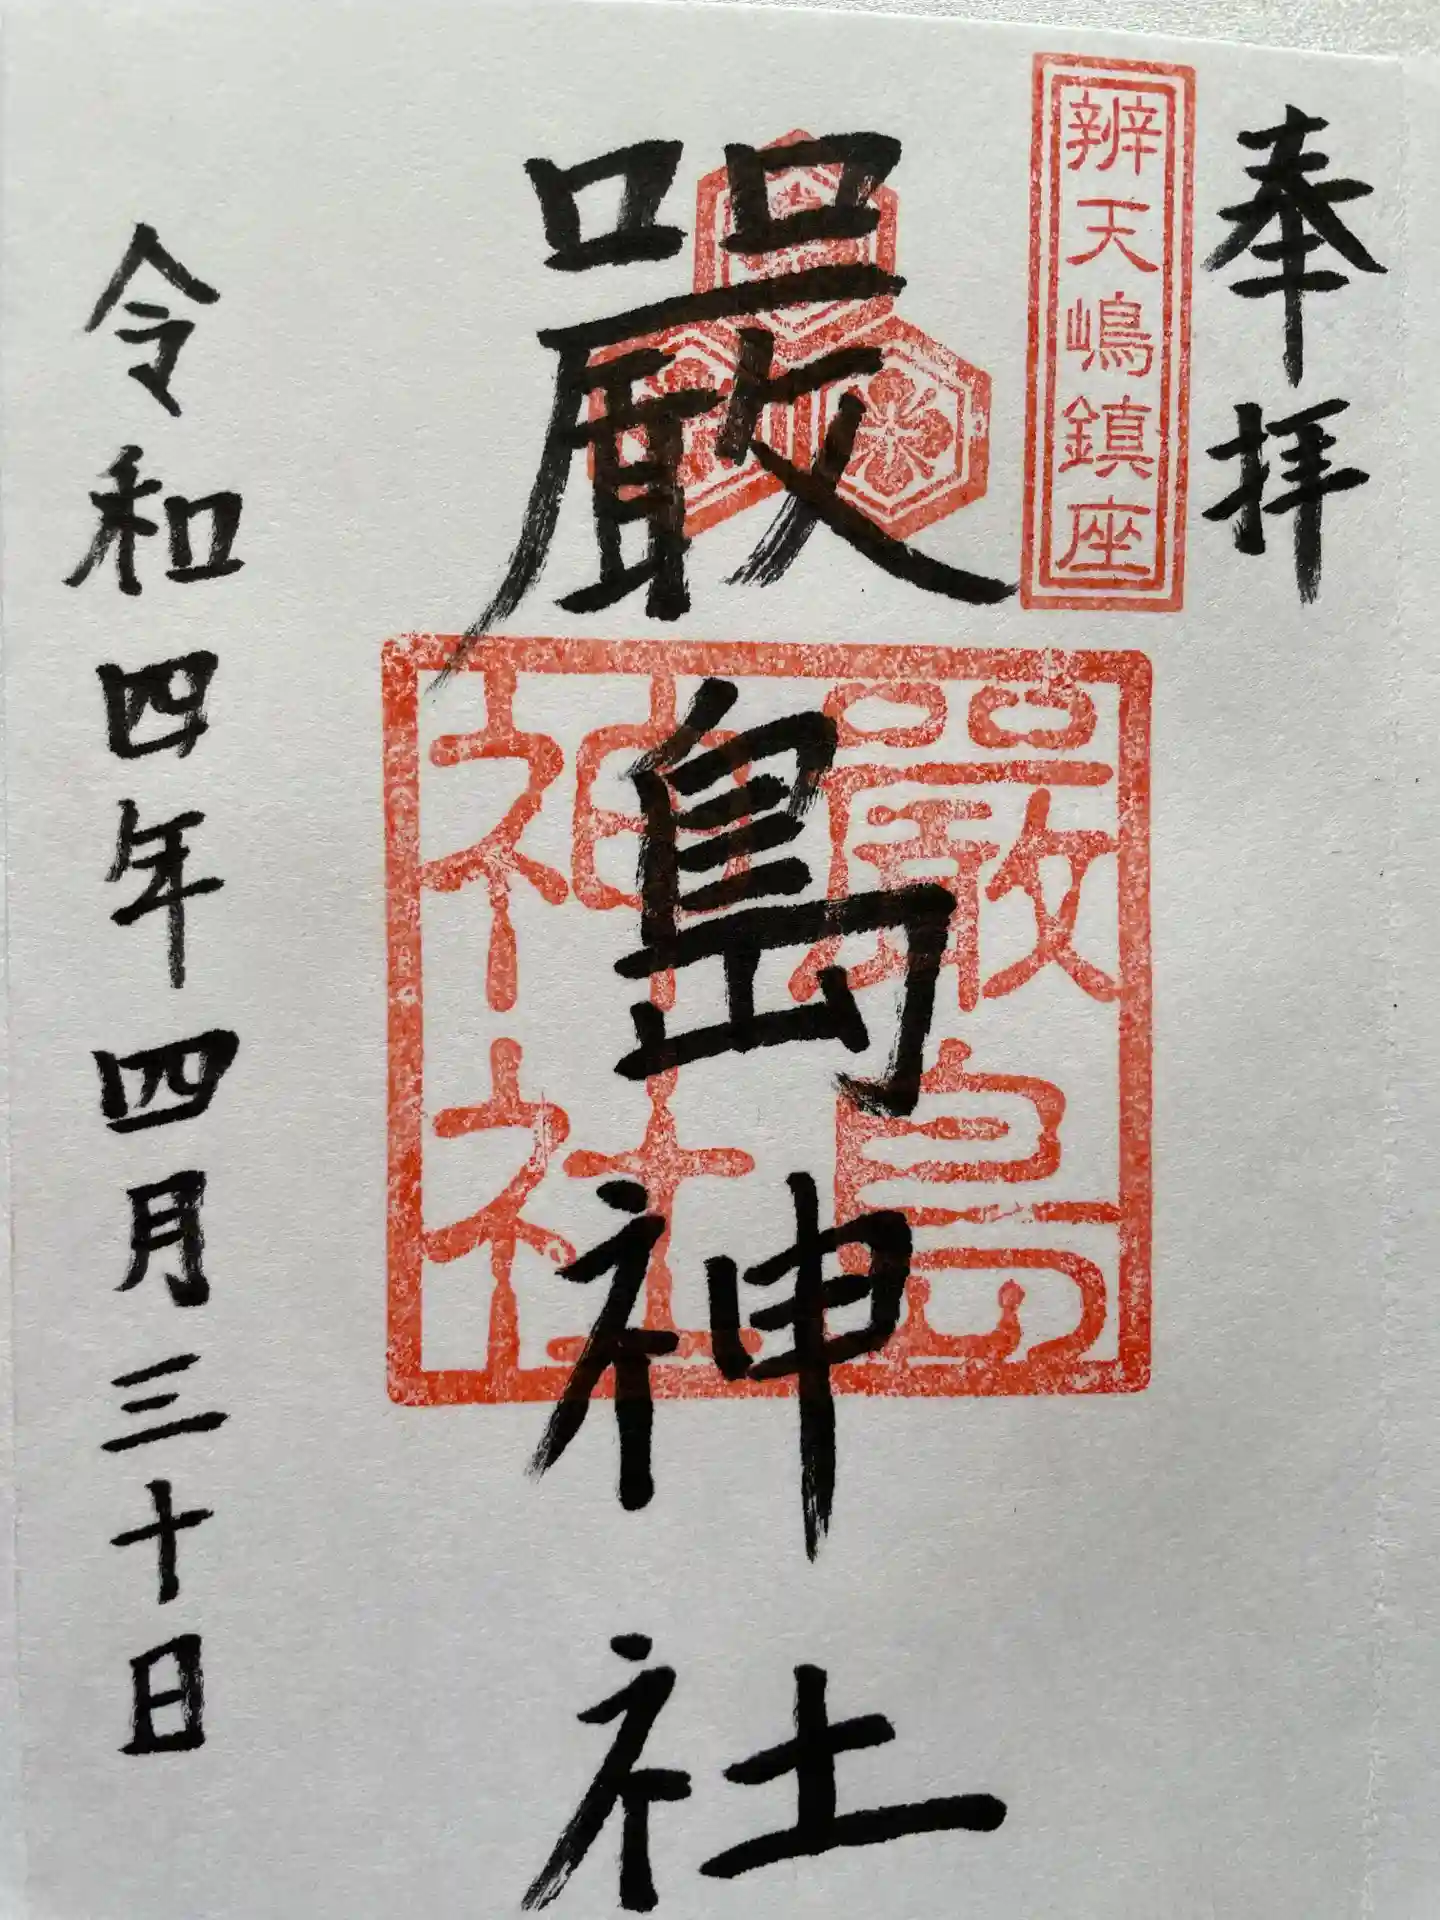 奉拝
辨天嶋鎮座
嚴島神社
嚴島
神社
令和四年四月三十日